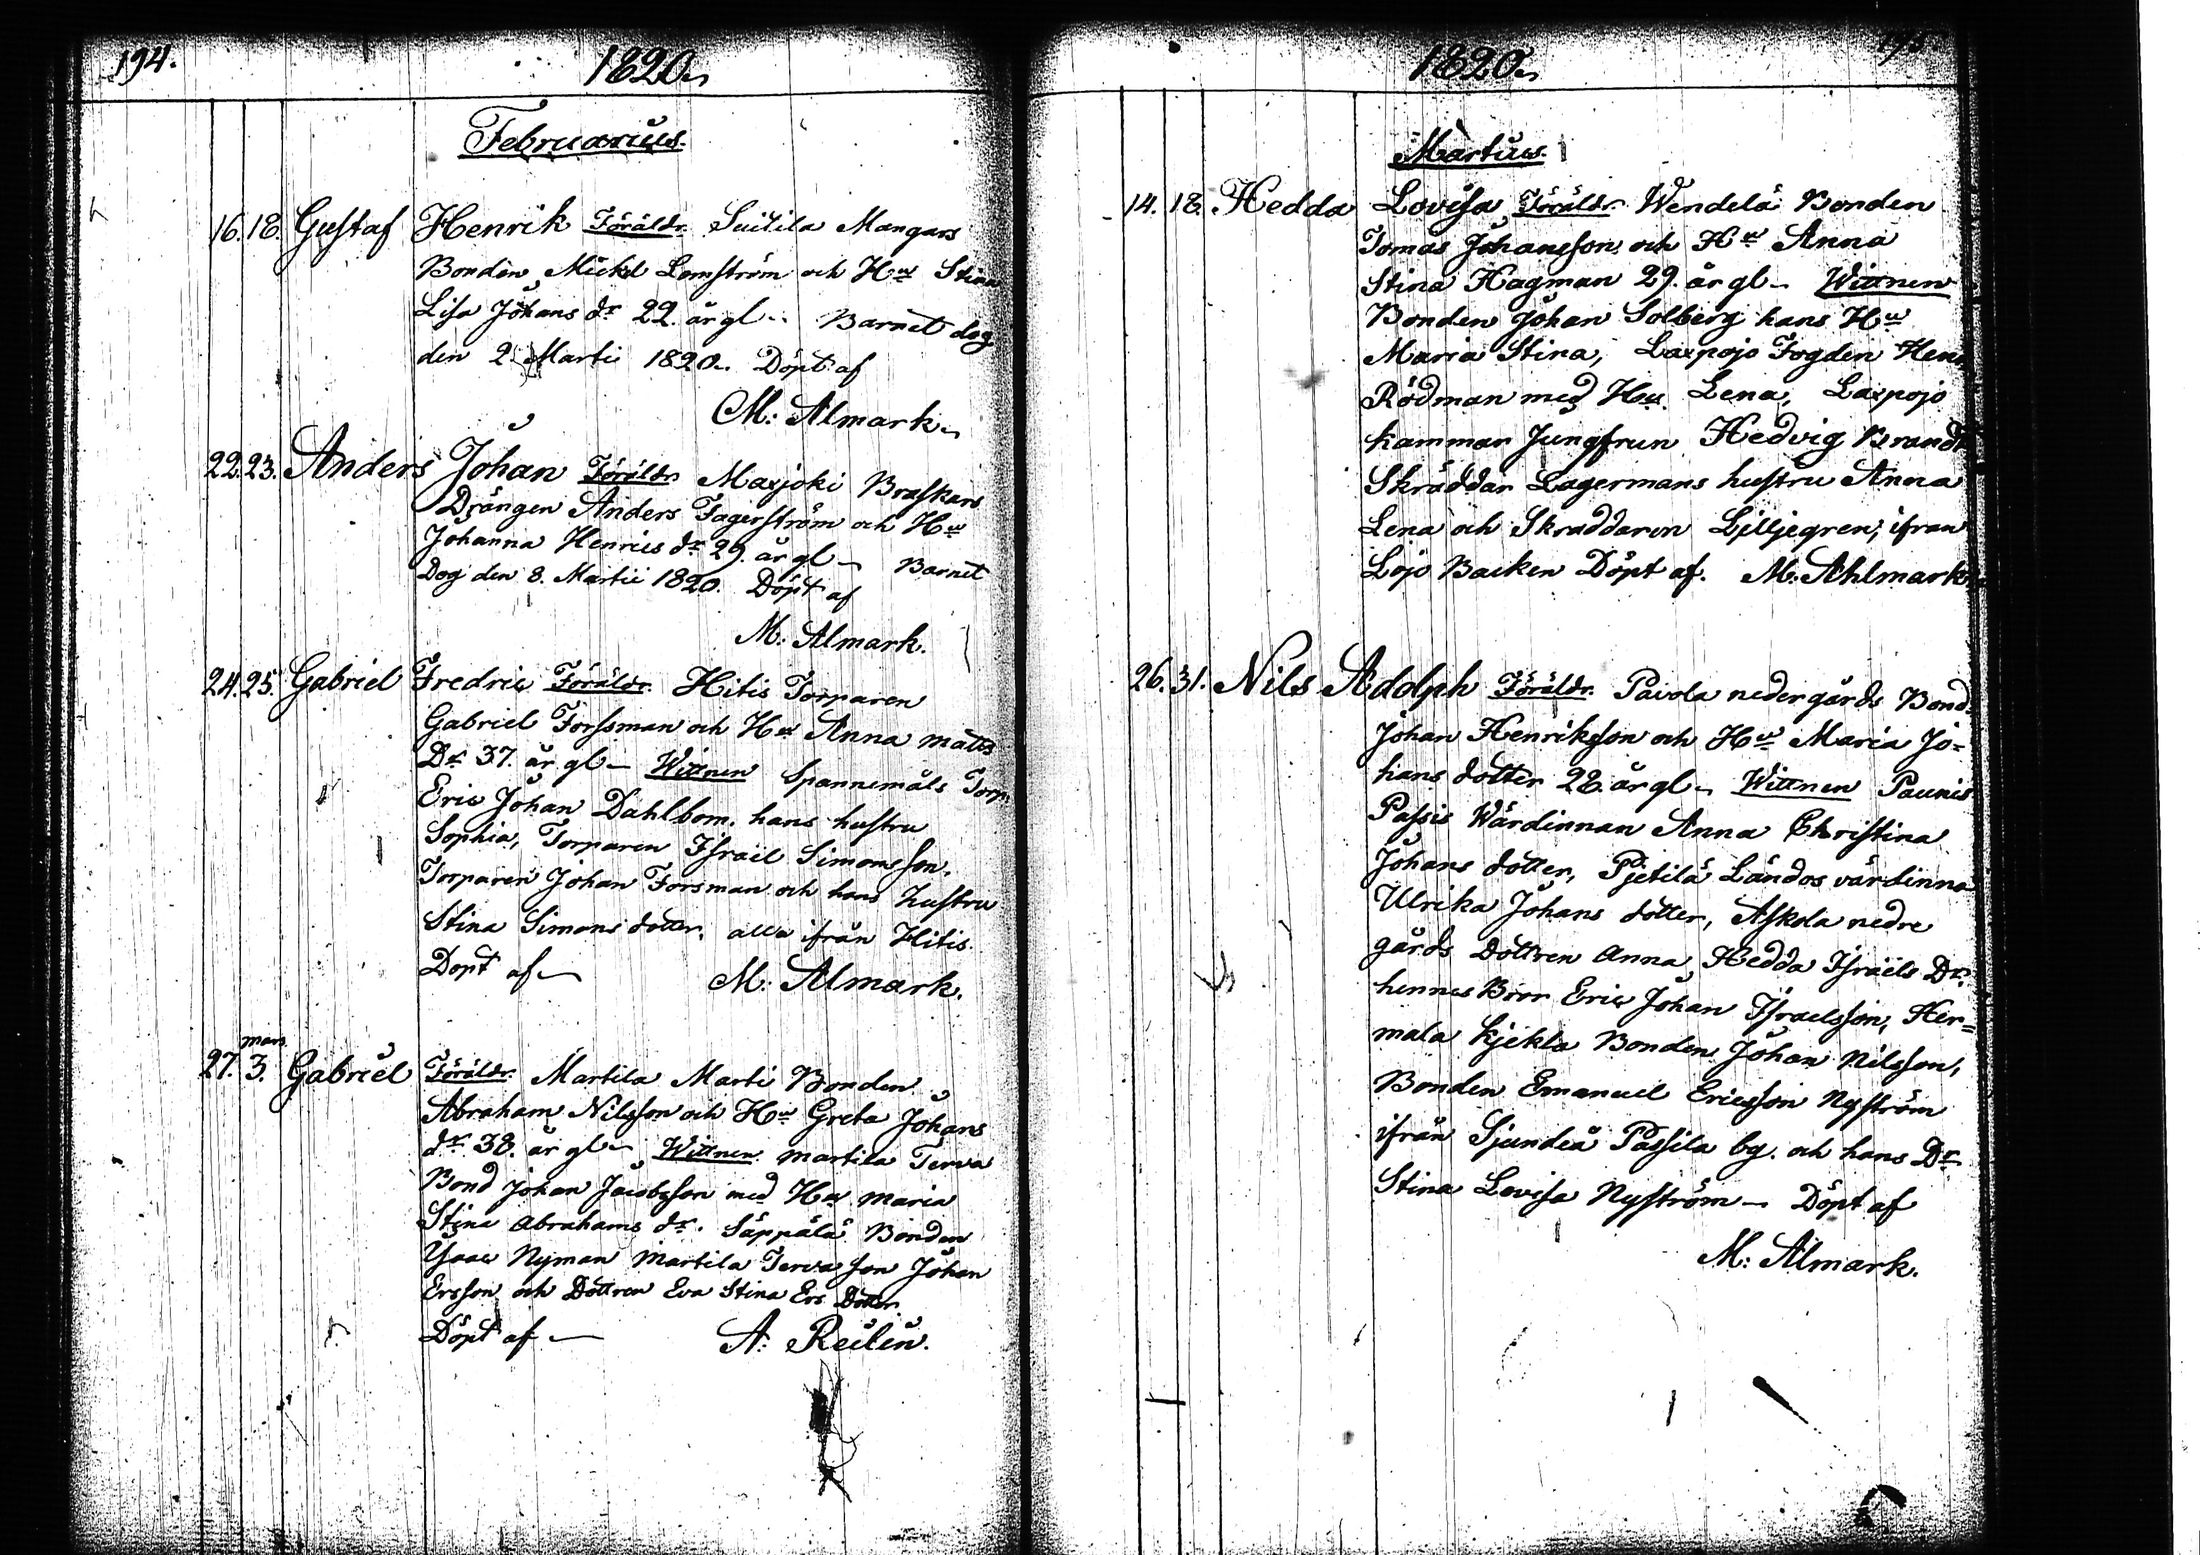 194.
1820.
Februarius.
16. 18. Gustaf Henrik Föräldr. Suitila Mangars
Bonden Mickel Lemström och Hu Stina
Lisa Johans dr 22. år gl. Barnet dog
den 2. Marti 1820. Döpt af
M: Almark.
22. 23. Anders Johan Föräldr. Maxjoki Braskars
Drängen Anders Fagerström och Hu
Johanna Henrics dr 29. år gl Barnet
Dog den 8. Martii 1820. Döpt af
M: Almark.
24. 25. Gabriel Fredric Föräldr. Hitis Torparen
Gabriel Forssman och Hu Anna Matts
Dr 37. år gl Wittnen Spannemåls Torp.
Eric Johan Dahlbom. hans hustru
Sophia, Torparen Israil Simonsson.
Torparen Johan Forsman och hans hustru
Stina Simons dotter. alla ifrån Hitis.
Döpt af M: Almark.
mars
27. 3. Gabriel Föräldr. Martila Marti Bonden
Abraham Nilsson och Hu Greta Johans
dr 38. år gl Wittnen Martila Terva
Bond Johan Jacobsson med Hu Maria
Stina Abrahams dr. Säppälä Bonden
Isaac Nyman Martila Terva son Johan
Ersson och Dottren Eva Stina Ers Dotter.
Döpt af A: Reilin.
195
1820.
Martius.
14. 18. Hedda Lovisa Föräldr. Wendelä Bonden
Tomas Johansson och Hu Anna
Stina Hagman 29. år gl Wittnen
Bonden Johan Solberg hans Hu
Maria Stina, Laxpojo Fogden Henr
Rödman med Hu Lena, Laxpojo
kammar Jungfrun Hedvig Brandt
Skräddar Lagermans hustru Anna
Lena och Skraddaren Lilljegren, ifran
Lojo Backen Döpt af. M. Ahlmark.
26. 31. Nils Adolph Föräldr. Paivola nedergårds Bond.
Johan Henriksson och Hu Maria Jo=
hans dotter 28. år gl Wittnen Paunis
Passis Wärdinnan Anna Christina
Johans dotter, Pjetilä Ländos värdinna
Ulrika Johans dotter, Askola nedre
gårds Dottren Anna Hedda Israels Dr
hennes Bror Eric Johan Israelsson, Her=
mala Kjekla Bonden Johan Nilsson,
Bonden Emanuel Ericsson Nyström
ifrån Sjundeå Passila by. och hans Dr
Stina Lovisa Nyström Döpt af
M: Almark.